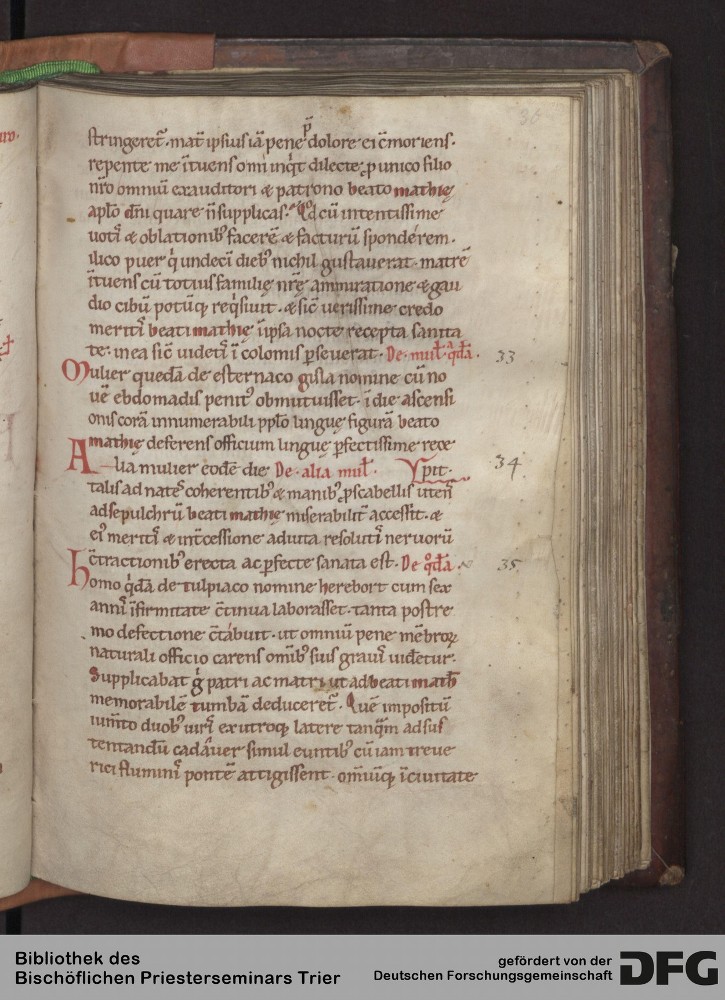 36
stringeret᷒. mat̄ ipsius iā pene p̄ dolore ei c̄moriens.
repente me ītuens o mi inq̇t dilecte. p unico filio
nr̄o omniū exauditori & patrono beato mathię
ap̄lo dn̄i quare n̄ supplicas. Qd̄ cū intentissime
uotī & oblationib; facerē & facturū sponderem.
ilico puer q̇ undecī dieb; nichil gustauerat. matrē
ītuens cū totius familię nr̄ę ammiratione & gau
dio cibū potūq; reqͥsiuit. & sic̄ uerissime credo
meritī beati mathię īipsa nocte recepta sanita
te: inea sic̄ uidetī īcolomis pseuerat. De mul̄. q̇dā. 33
Mulier quedā de esternaco gisla nomine cū no
uē ebdomadis penit; obmutuisset. ī die ascensi
onis corā innumerabili pp̄lo linguę figurā beato
mathię deferens officium linguę pfectissime rece
Alia mulier eodē die De alia mul̄. pit. 34
talis ad nates coherentib; & manib; p scabellis utens
ad sepulchrū beati mathię miserabilit᷒ accessit. &
ei; meritī & int᷒cessione adiuta resolutī neruorū
c̄tractionib; erecta ac pfecte sanata est. De qͦdā 35
homo q̇dā de tulpiaco nomine herebort cum sex
annī īfirmitate c̄tinua laborasset. tanta postre
mo defectione c̄tabuit. ut omniū pene mēbroꝝ
naturali officio carens omīb; suis grauī uidetur.
Supplicabat g̊ patri ac matri ut ad beati math̄
memorabilē tumbā deduceret᷒. Quē impositū
ium̄to duob; uirī ex utroq; latere tanq̄m ad sus
tentandū cadauer simul euntib; cū iam treue
rici fluminī pontē attigissent. omīuq; īciuitate
Bibliothek des
Bischöflichen Priesterseminars Trier
gefördert von der
Deutschen Forschungsgemeinschaft
DFG